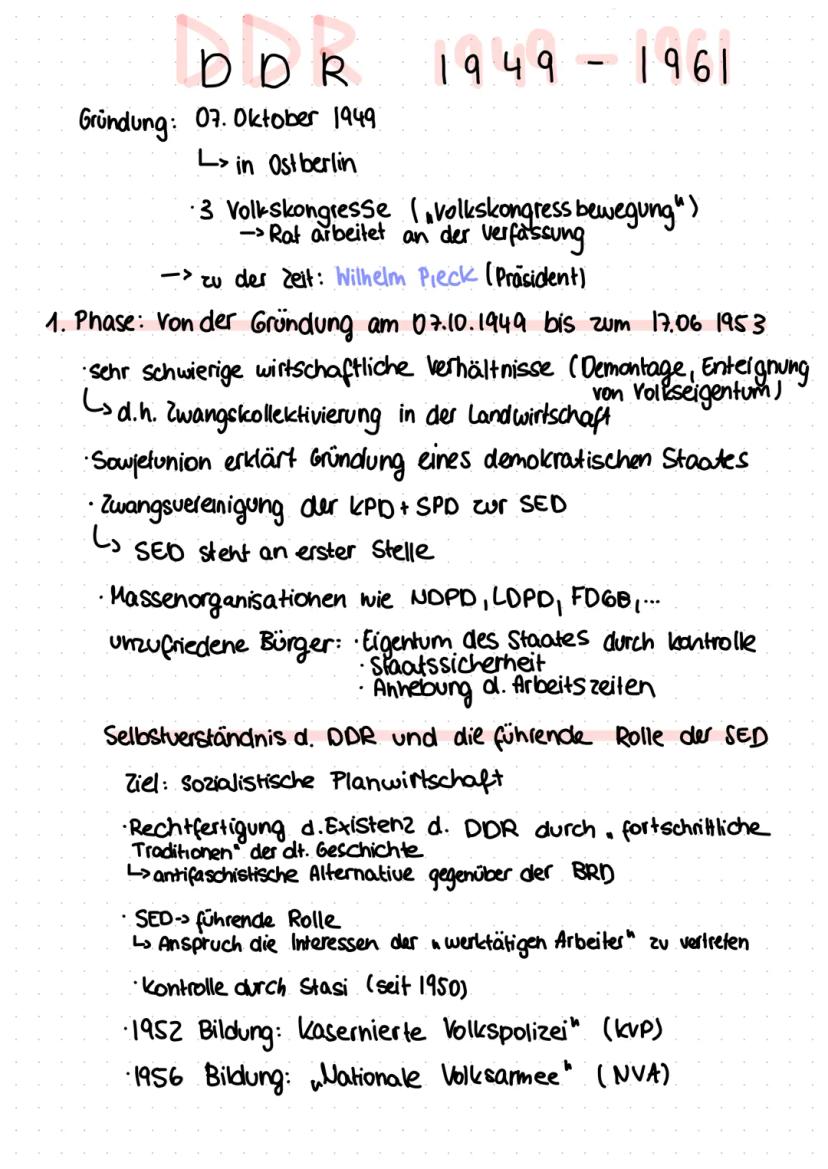 DDR 1949 - 1961
Gründung: 07. Oktober 1949
↳ in Ostberlin
· 3 Volkskongresse („Volkskongressbewegung")
→ Rat arbeitet an der Verfassung
→ zu der Zeit: Wilhelm Pieck (Präsident)
1. Phase: Von der Gründung am 07.10.1949 bis zum 17.06 1953
· sehr schwierige wirtschaftliche Verhältnisse (Demontage, Enteignung
von Volkseigentum)
↳ d.h. Zwangskollektivierung in der Landwirtschaft
· Sowjetunion erklärt Gründung eines demokratischen Staates
· Zwangsvereinigung der KPD + SPD zur SED
↳ SED steht an erster Stelle
· Massenorganisationen wie NDPD, LDPD, FDGB, ...
unzufriedene Bürger: · Eigentum des Staates durch Kontrolle
· Staatssicherheit
· Anhebung d. Arbeitszeiten
Selbstverständnis d. DDR und die führende Rolle der SED
Ziel: sozialistische Planwirtschaft
· Rechtfertigung d. Existenz d. DDR durch „fortschrittliche
Traditionen" der dt. Geschichte
↳ antifaschistische Alternative gegenüber der BRD
· SED → führende Rolle
↳ Anspruch die Interessen der „werktätigen Arbeiter" zu vertreten
· Kontrolle durch Stasi (seit 1950)
· 1952 Bildung: Kasernierte Volkspolizei" (KVP)
· 1956 Bildung: „Nationale Volksarmee" (NVA)